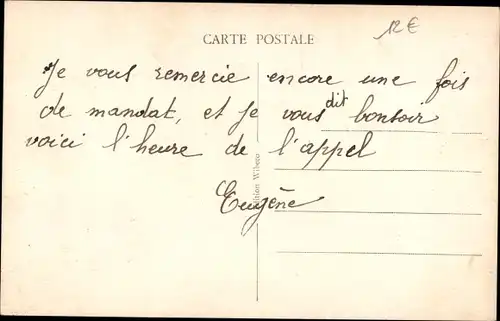 12€
CARTE POSTALE
Je vous remercie encore une fois
de mandat, et je vous dit bonsoir
voici l'heure de l'appel
Eugène